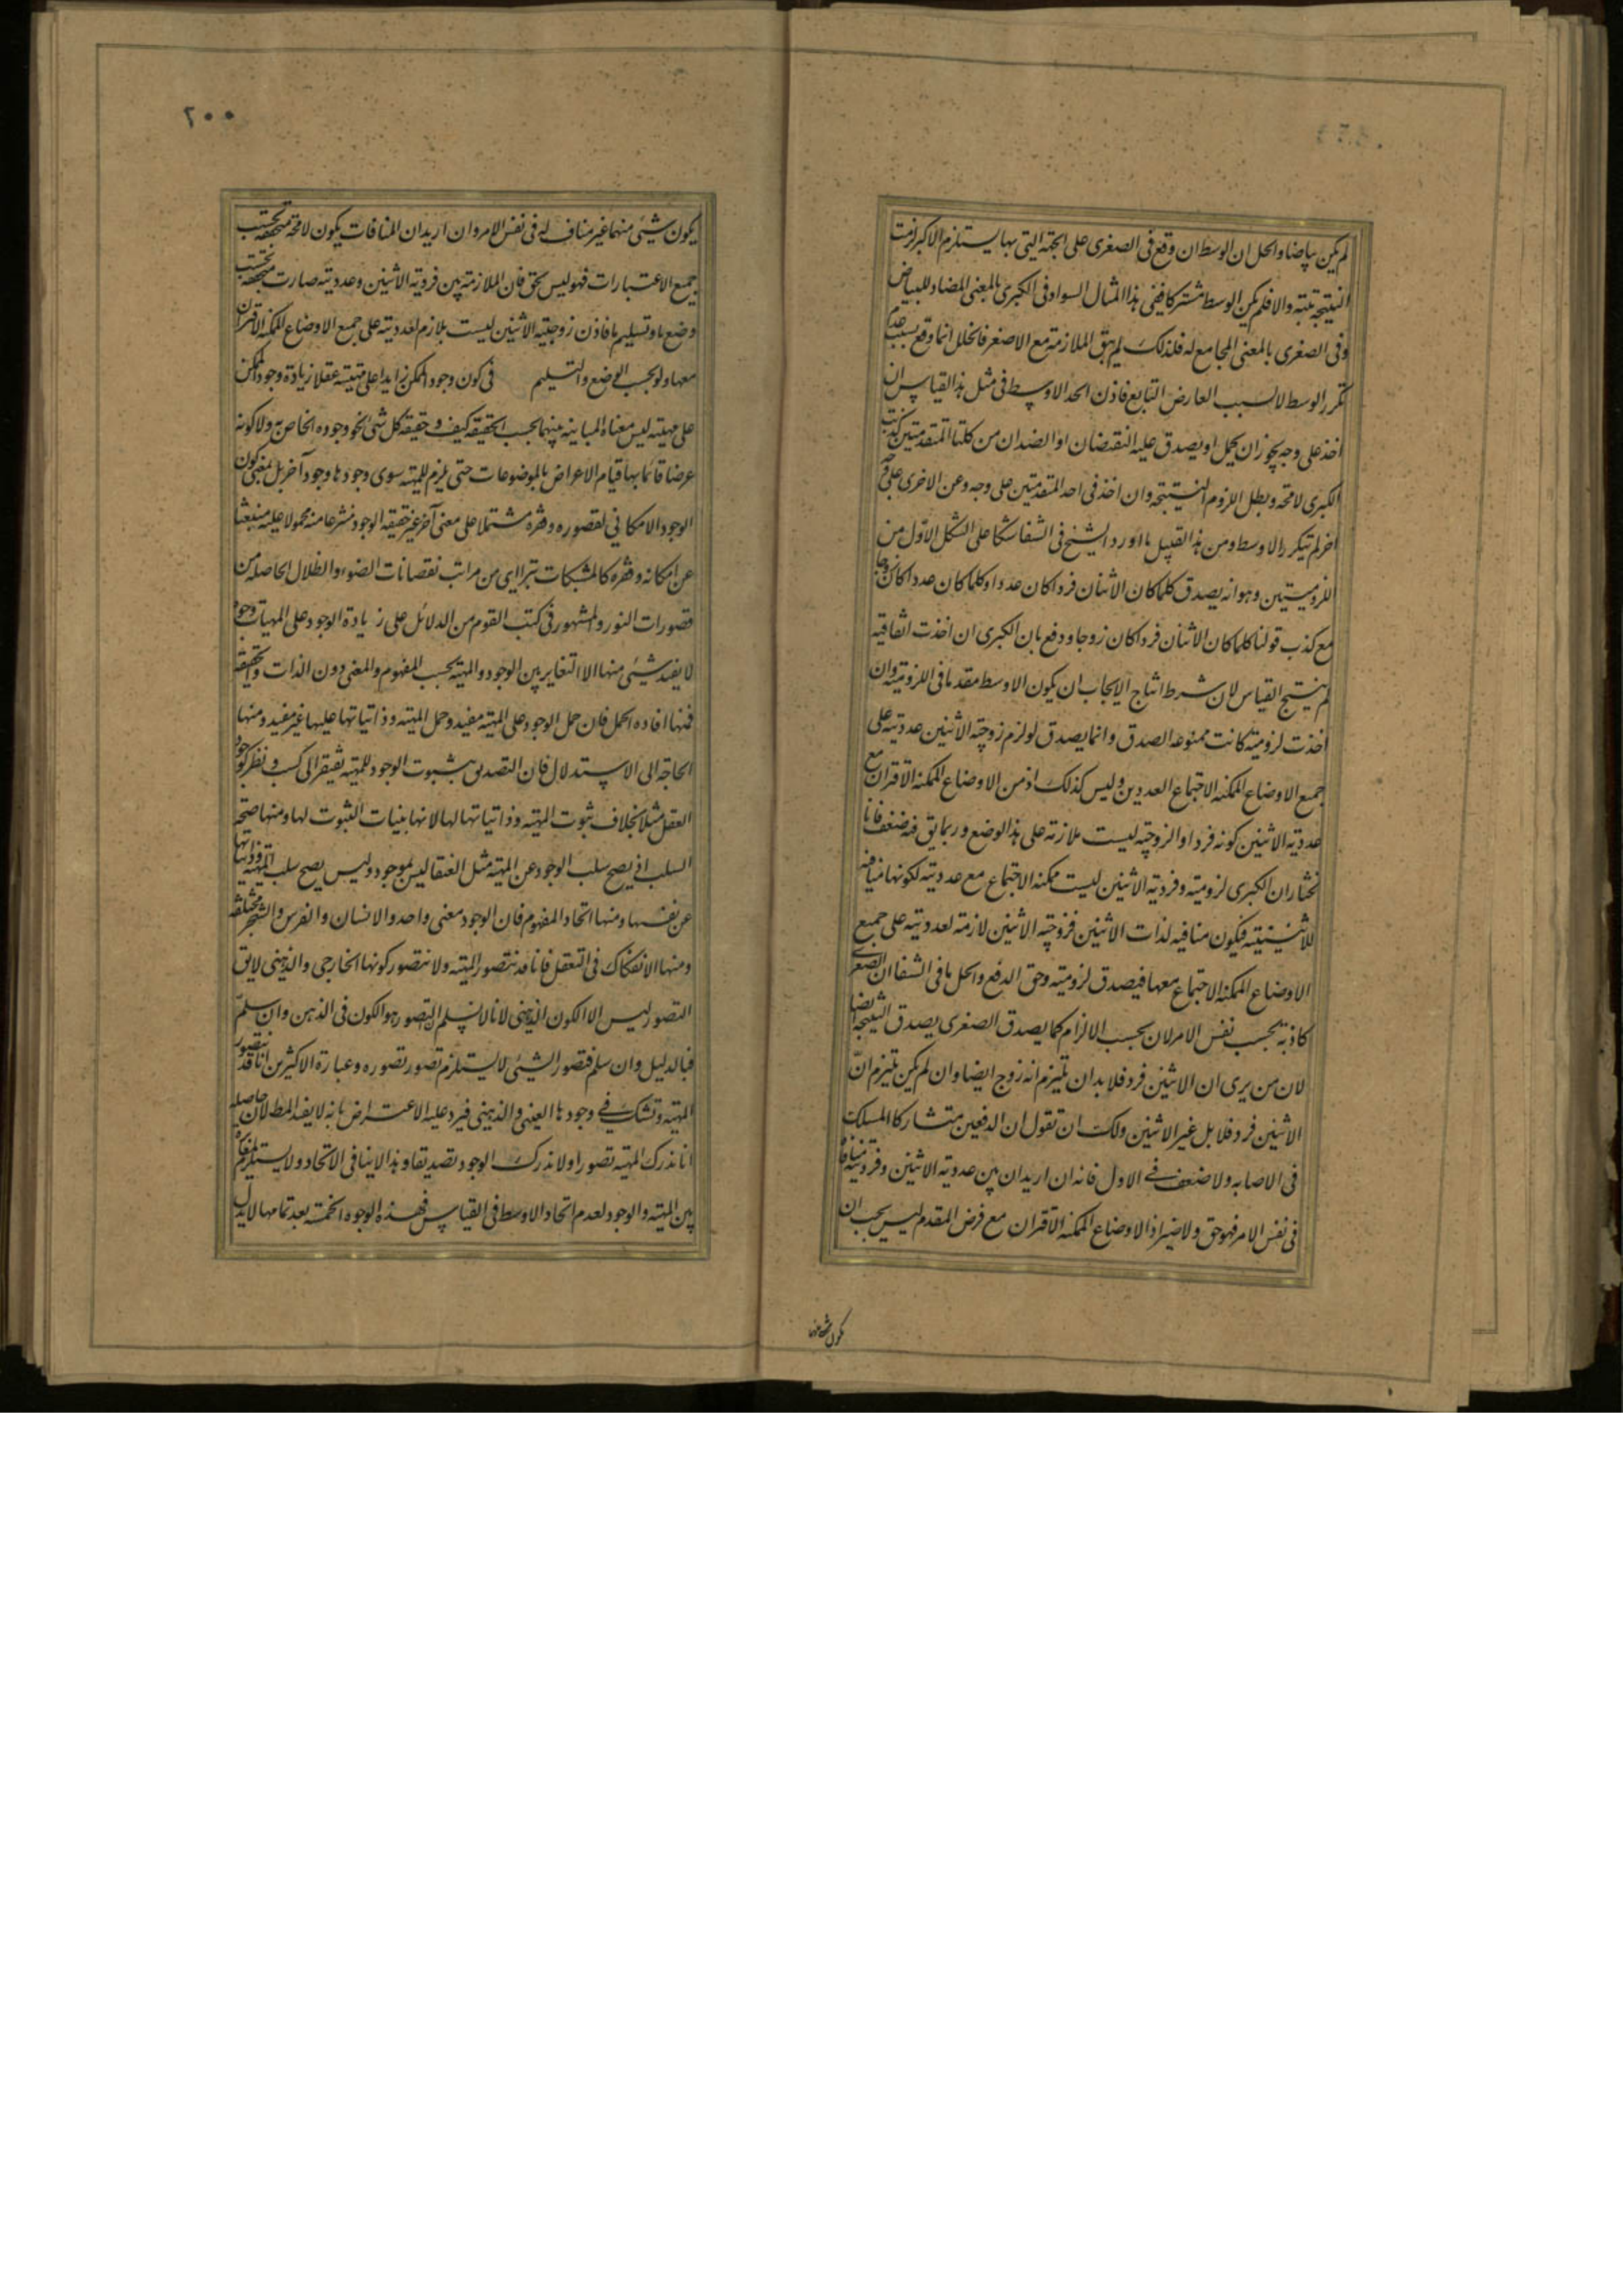 لم يكن بياضا والحل ان الوسط ان وقع فى الصغرى على الجهة التى بها يستلزم الاكبر لزمت
النتيجة بتية والا فلم يكن الوسط مشتركا ففى هذا المثال السواد فى الكبرى بالمعنى المضاد للبياض
وفى الصغرى بالمعنى المجامع له فلذلك لم يبق الملازمة مع الاصغر فالخلل انما وقع بسبب عدم
تكرر الوسط لا لسبب العارض التابع فاذن الحد الاوسط فى مثل هذا القياس ان
اخذ على وجه يجوز ان يحمل او يصدق عليه النقيضان او الضدان من كلتا المتقدمتين كذبت
الكبرى لا محة وبطل اللزوم النتيجة وان اخذ فى احد المتقدمتين على وجه وعن الاخرى على وجه
اخر لم يتكرر الاوسط ومن هذا القبيل ما اورد الشيخ فى الشفا شكا على الشكل الاول من
اللزوميتين وهو انه يصدق كلما كان الاثنان فردا كان عددا وكلما كان عددا كان زوجا
مع كذب قولنا كلما كان الاثنان فردا كان زوجا ودفع بان الكبرى ان اخذت اتفاقية
لم ينتج القياس لان شرط انتاج الايجاب ان يكون الاوسط مقدما فى اللزومية وان
اخذت لزومية كانت ممنوعة الصدق وانما يصدق لو لزم زوجية الاثنين عدديته على
جميع الاوضاع الممكنة الاجتماع العددين وليس كذلك اذ من الاوضاع الممكنة الاقتران مع
عددية الاثنين كونه فردا والزوجية ليست ملازمة على هذا الوضع وربما يق فيه ضعف فانا
نختار ان الكبرى لزومية وفردية الاثنين ليست ممكنة الاجتماع مع عدديته لكونها منافية
للاثنينية فيكون منافية لذات الاثنين فزوجية الاثنين لازمة لعدديته على جميع
الاوضاع الممكنة الاجتماع معها فيصدق لزومية وحق الدفع والحل ما فى الشفا ان الصغرى
كاذبة بحسب نفس الامر لان بحسب الالزام كما يصدق الصغرى يصدق النتيجة ايضا
لان من يرى ان الاثنين فرد فلا بد ان يلتزم انه زوج ايضا وان لم يكن يلتزم ان
الاثنين فرد فلا بل غير الاثنين ولك ان تقول ان الدفعين متشاركا المسلك
فى الاصابة ولا ضعف فى الاول فانه ان اريد ان بين عددية الاثنين وفرديته منافاة
فى نفس الامر فهو حق ولا ضير اذ الاوضاع الممكنة الاقتران مع فرض المقدم ليس يجب ان
يكون شئ منها
٢٠٠
يكون شئ منها غير مناف له فى نفس الامر وان اريد ان المنافات يكون لا محة متحققة بحسب
جميع الاعتبارات فهو ليس بحق فان الملازمة بين فردية الاثنين وعدديته صارت متحققة بحسب
وضع ما وتسليم ما فاذن زوجية الاثنين ليست بلازم لعدديته على جميع الاوضاع الممكنة الاقتران
معها ولو بحسب الوضع والتسليم فى كون وجود الممكن زايدا على مهيته عقلا زيادة وجود الممكن
على مهيته ليس معناه المباينة بينهما بحسب الحقيقة كيف وحقيقة كل شئ نحو وجوده الخاص به ولا كونه
عرضا قائما بها قيام الاعراض بالموضوعات حتى يلزم للمهية سوى وجودها وجود آخر بل بمعنى كون
الوجود الامكانى لقصوره وفقره مشتملا على معنى آخر غير حقيقة الوجود منتزعا منه محمولا عليه منبعثا
عن امكانه وفقره كالمشبكات يترااى من مراتب نقصانات الضوء والظلال الحاصلة من
قصورات النور والمشهور فى كتب القوم من الدلائل على زيادة الوجود على المهيات وجوه
لا يفيد شئ منها الا التغاير بين الوجود والمهية بحسب المفهوم والمعنى دون الذات والحقيقة
فمنها افادة الحمل فان حمل الوجود على المهية مفيد وحمل المهية وذاتياتها عليها غير مفيد ومنها
الحاجة الى الاستدلال فان التصديق بثبوت الوجود للمهية يفتقر الى كسب ونظر كوجود
العقل مثلا بخلاف ثبوت المهية وذاتياتها لها لانها بينات الثبوت لها ومنها صحة
السلب اذ يصح سلب الوجود عن المهية مثل العنقا ليس بموجود وليس يصح سلب المهية وذاتياتها
عن نفسها ومنها اتحاد المفهوم فان الوجود معنى واحد والانسان والفرس والشجر مختلفة
ومنها الانفكاك فى التعقل فانا قد نتصور المهية ولا نتصور كونها الخارجى والذهنى لا يق
التصور ليس الا الكون الذهنى لانا لا نسلم ان التصور هو الكون فى الذهن وان سلم
فبالدليل وان سلم فتصور الشئ لا يستلزم تصور تصوره وعبارة الاكثرين انا قد نتصور
المهية ونشك فى وجودها العينى والذهنى فيرد عليه الاعتراض بانه لا يفيد المط لان حاصله
انا ندرك المهية تصورا ولا ندرك الوجود تصديقا وهذا لا ينافى الاتحاد ولا يستلزم المغايرة
بين المهية والوجود لعدم اتحاد الاوسط فى القياس فهذه الوجوه الخمسة بعد تمامها لا يدل